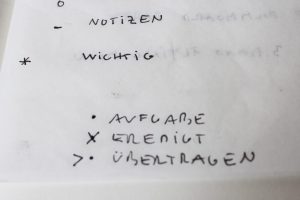 o
- NOTIZEN
* WICHTIG
• AUFGABE
X EREDIGT
>• ÜBERTRAGEN